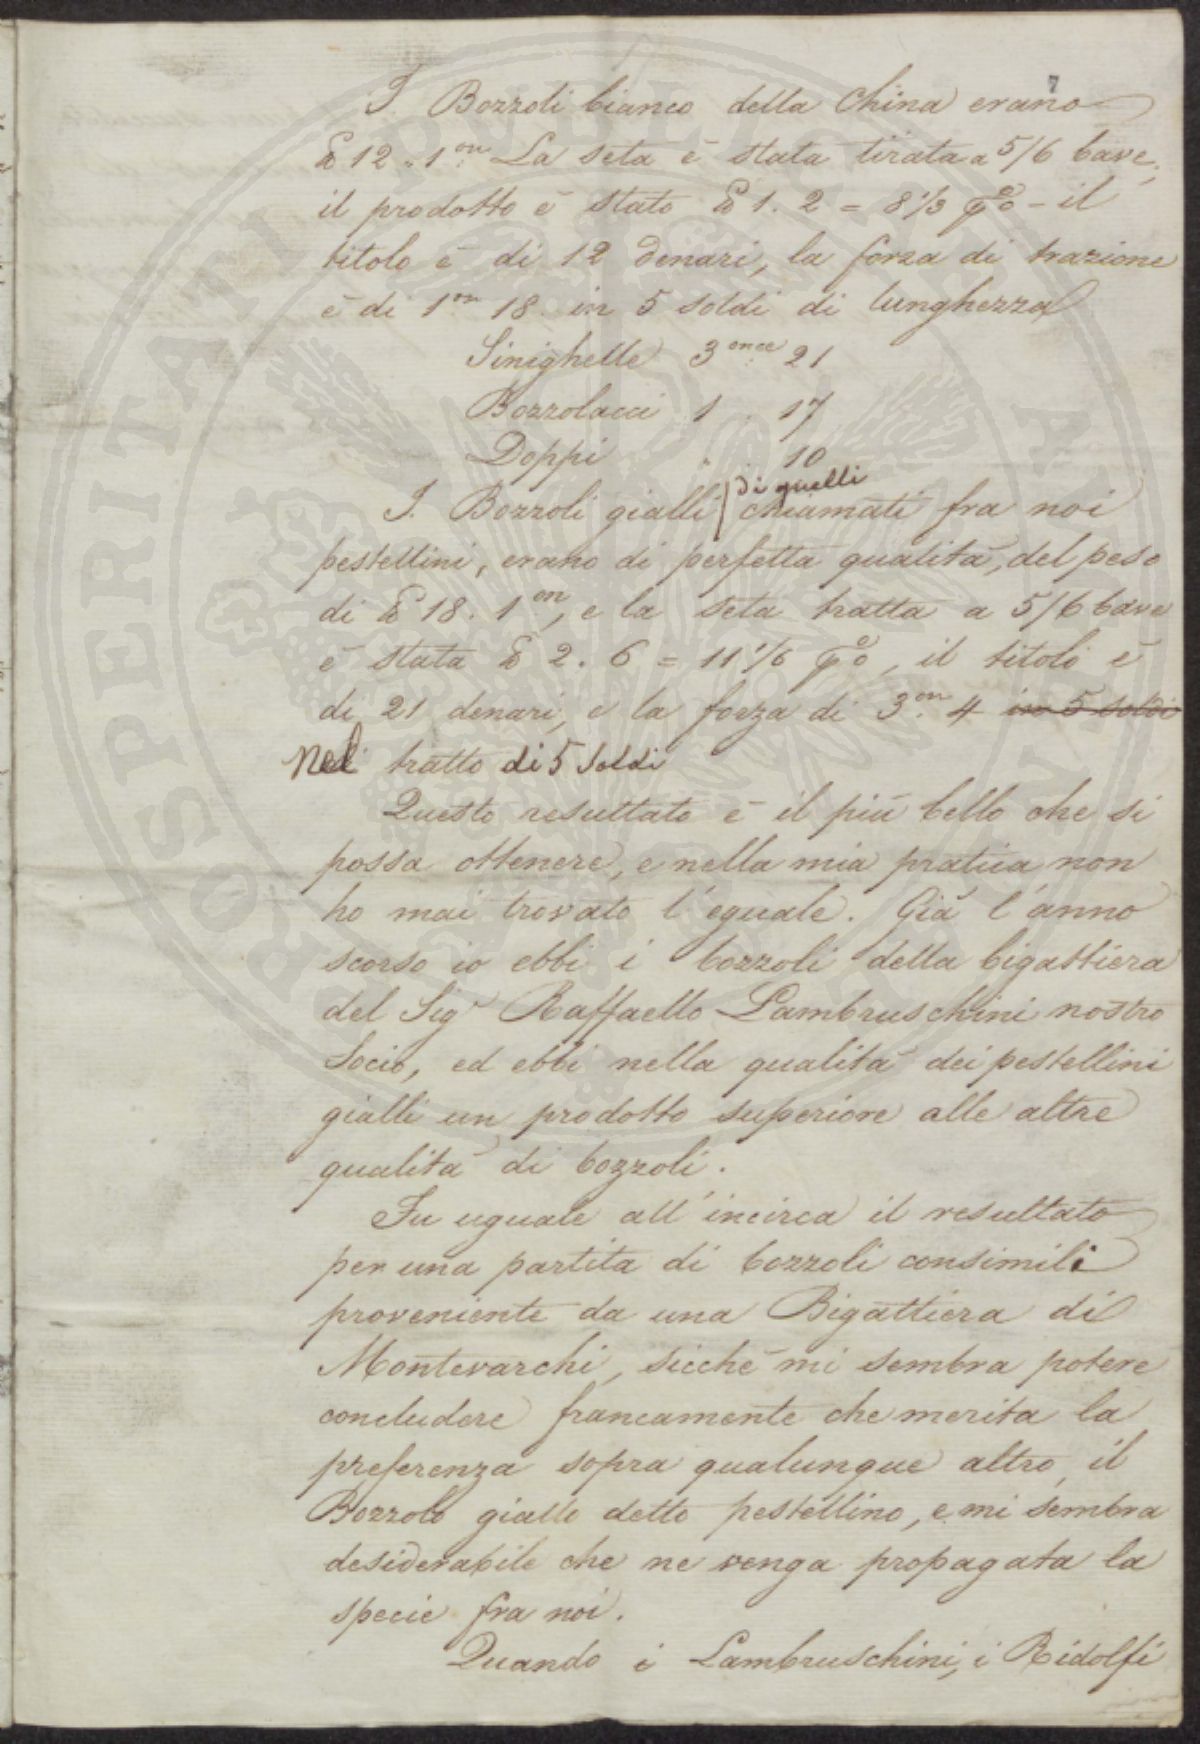 7
I. Bozzoli bianco della China erano
℔ 12 " 1 on La seta è stata tirata a 5/6 bave,
il prodotto è stato ℔ 1. 2 = 8 1/3 p% - il
titolo è di 12 denari, la forza di trazione
è di 1 on 18 in 5 soldi di lunghezza
Sinighelle 3 once 21
Bozzolacci 1 . 17
Doppi " . 10
di quelli
I. Bozzoli gialli chiamati fra noi
pestellini, erano di perfetta qualità, del peso
di ℔ 18. 1 on, e la seta tratta a 5/6 bave
è stata ℔ 2. 6 = 11 1/6 p%, il titolo è
di 21 denari, e la forza di 3 on 4 in 5 soldi
nel tratto di 5 soldi
Questo resultato è il più bello che si
possa ottenere, e nella mia pratica non
ho mai trovato l'eguale. Già l'anno
scorso io ebbi i bozzoli della bigattiera
del Sigr Raffaello Lambruschini nostro
Socio, ed ebbi nella qualità dei pestellini
gialli un prodotto superiore alle altre
qualità di bozzoli.
Fu uguale all'incirca il resultato
per una partita di bozzoli consimili
proveniente da una Bigattiera di
Montevarchi, sicchè mi sembra potere
concludere francamente che merita la
preferenza sopra qualunque altro, il
Bozzolo giallo detto pestellino, e mi sembra
desiderabile che ne venga propagata la
specie fra noi.
Quando i Lambruschini, i Ridolfi
PROSPERITATI PVBLICAE AVGENDAE